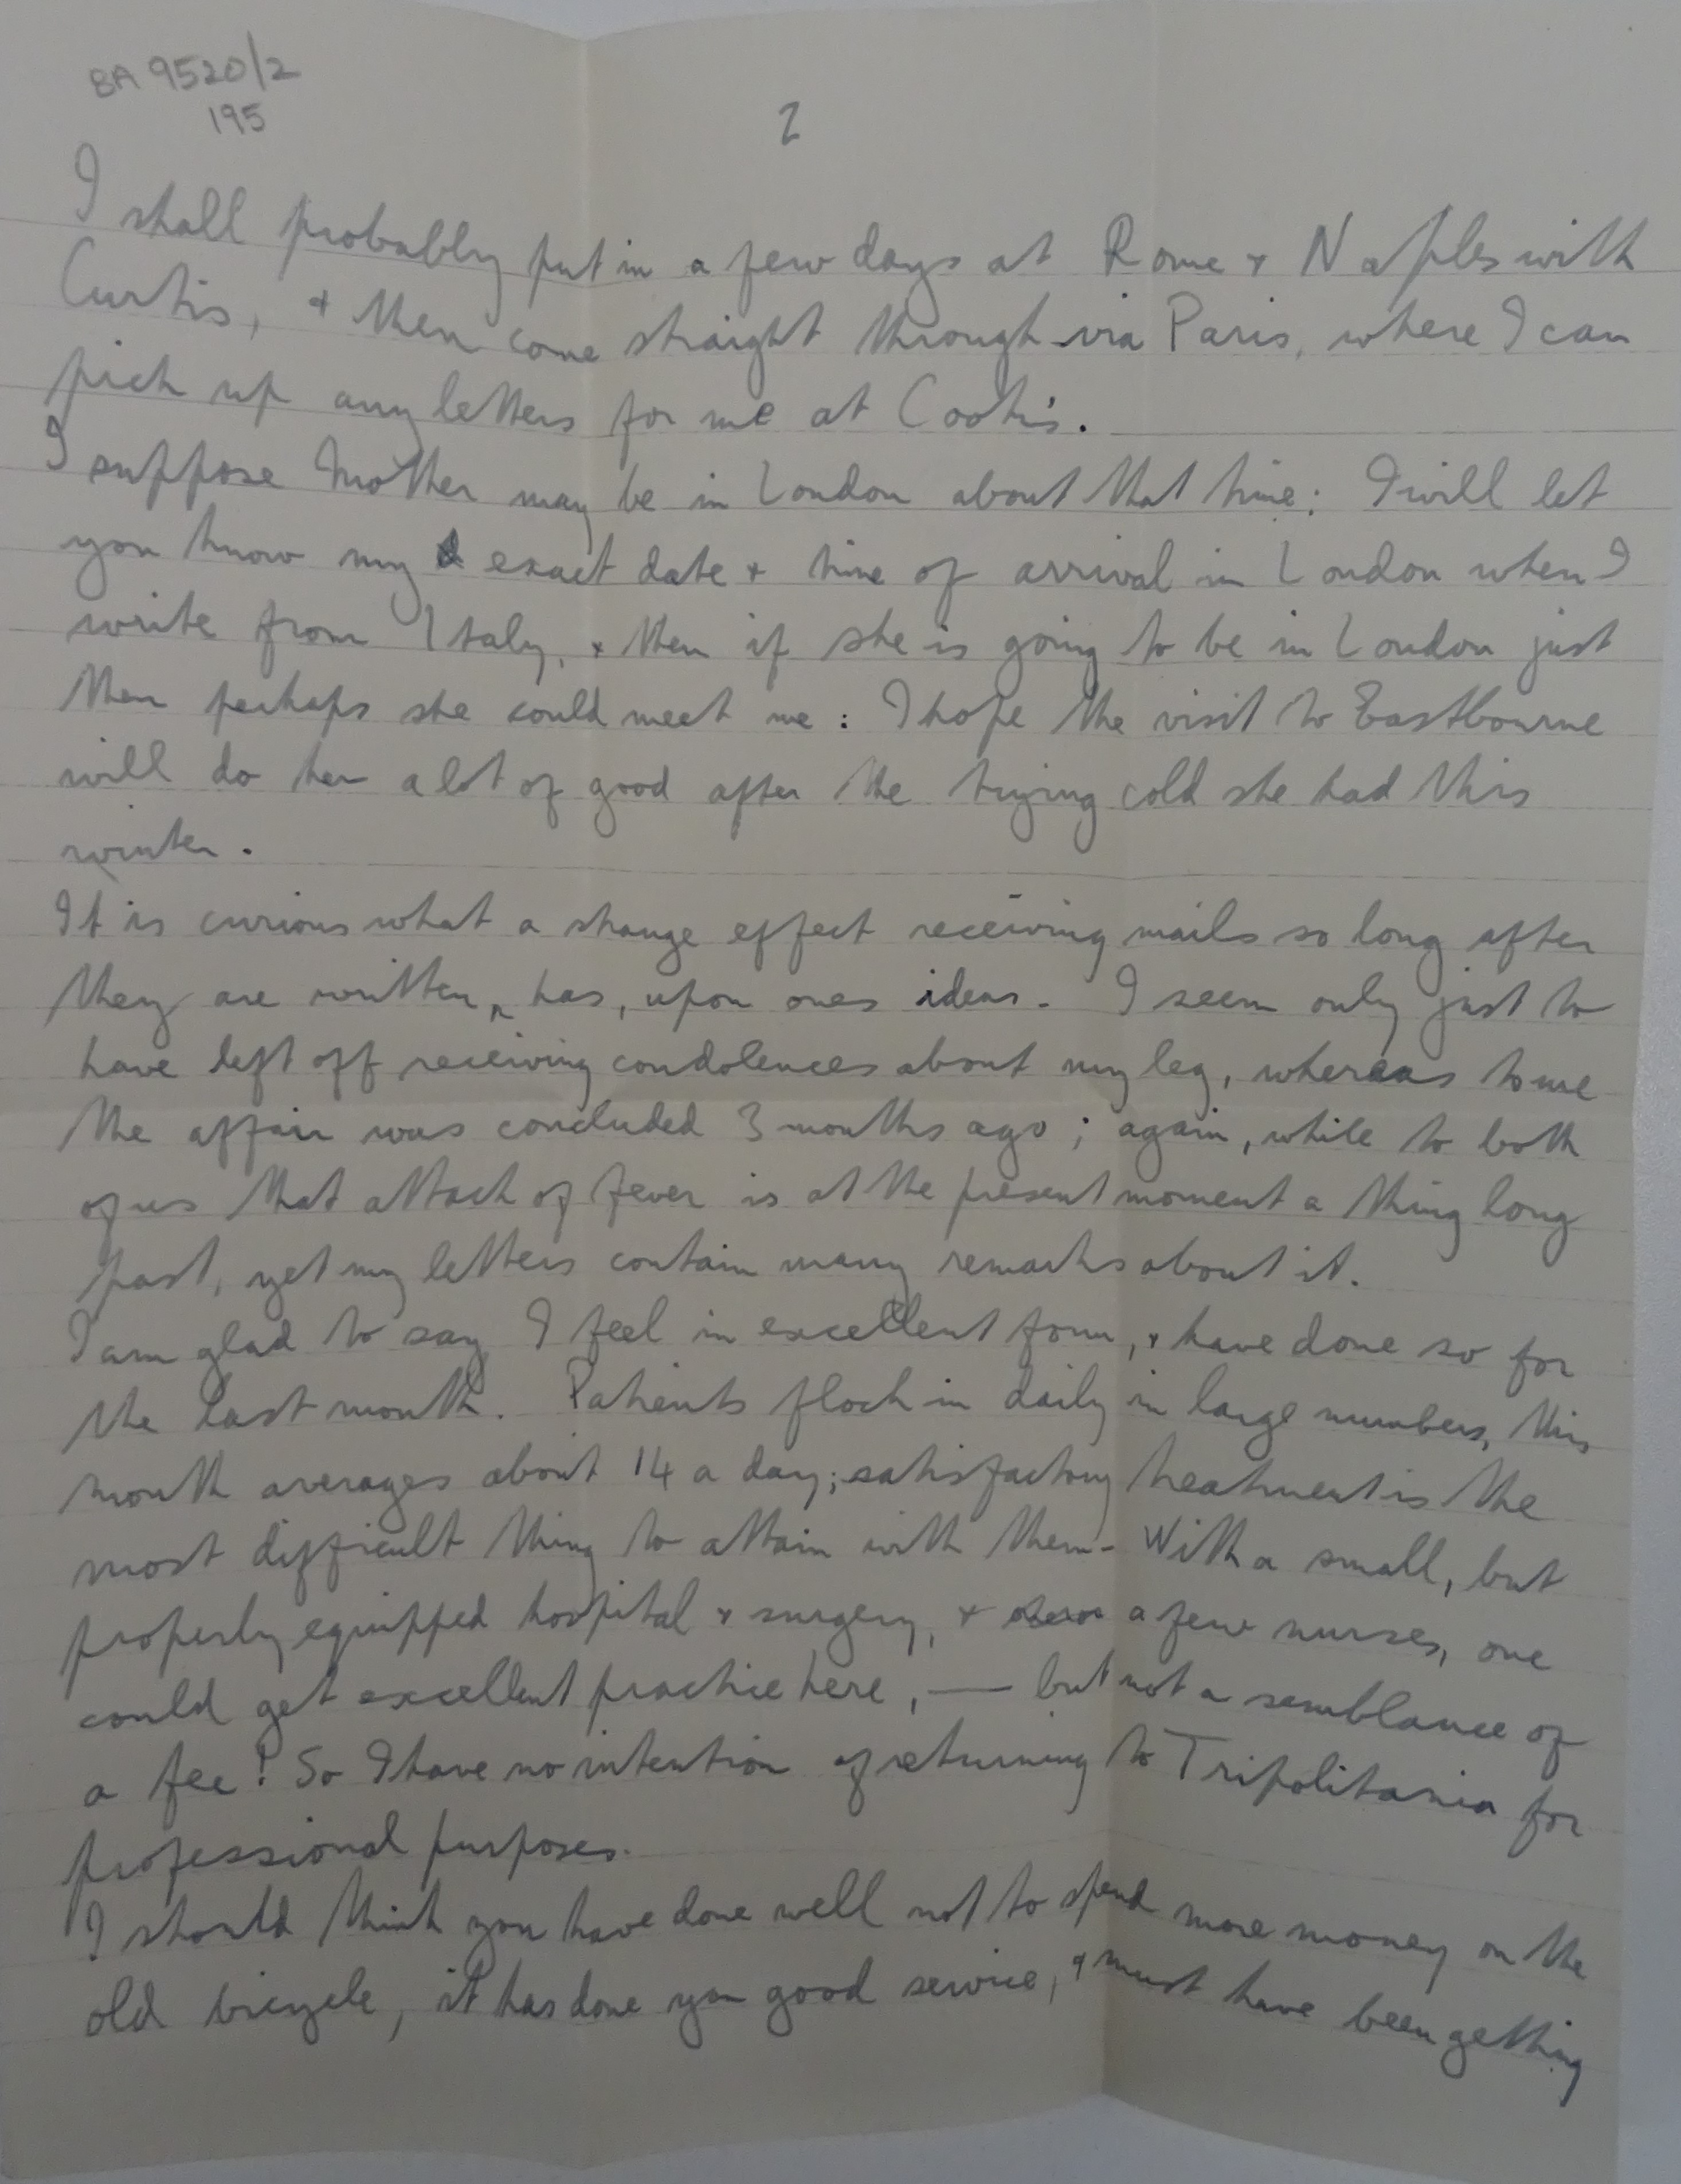 8A 9520/2
195
2
I shall probably put in a few days at Rome + Naples with
Curtis, + then come straight through via Paris, where I can
pick up any letters for me at Cook's.
I suppose Mother may be in London about that time: I will let
you know my exact date + time of arrival in London when I
write from Italy, + then if she is going to be in London just
then perhaps she could meet me: I hope the visit to Eastbourne
will do her a lot of good after the trying cold she had this
winter.
It is curious what a strange effect receiving mails so long after
they are written, has, upon ones ideas. I seem only just to
have left off receiving condolences about my leg, whereas to me
the affair was concluded 3 months ago; again, while to both
of us that attack of fever is at the present moment a thing long
past, yet my letters contain many remarks about it.
I am glad to say I feel in excellent form, + have done so for
the last month. Patients flock in daily in large numbers, this
month averages about 14 a day; satisfactory treatment is the
most difficult thing to attain with them - With a small, but
properly equipped hospital + surgery, + a few nurses, one
could get excellent practice here, — but not a semblance of
a fee! So I have no intention of returning to Tripolitania for
professional purposes.
I should think you have done well not to spend more money on the
old bicycle, it has done you good service, + must have been getting